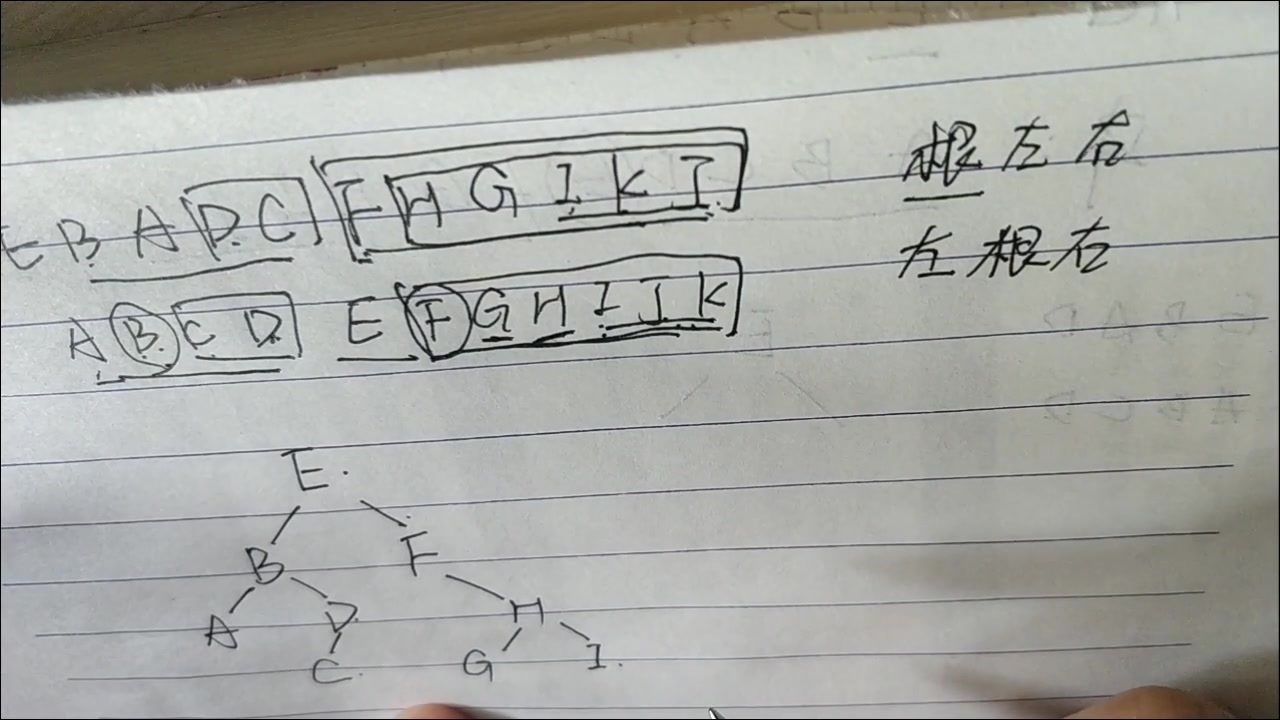 E B A D C F H G I K J
根左右
A B C D E F G H I J K
左根右
E.
B F
A D H
C G I.